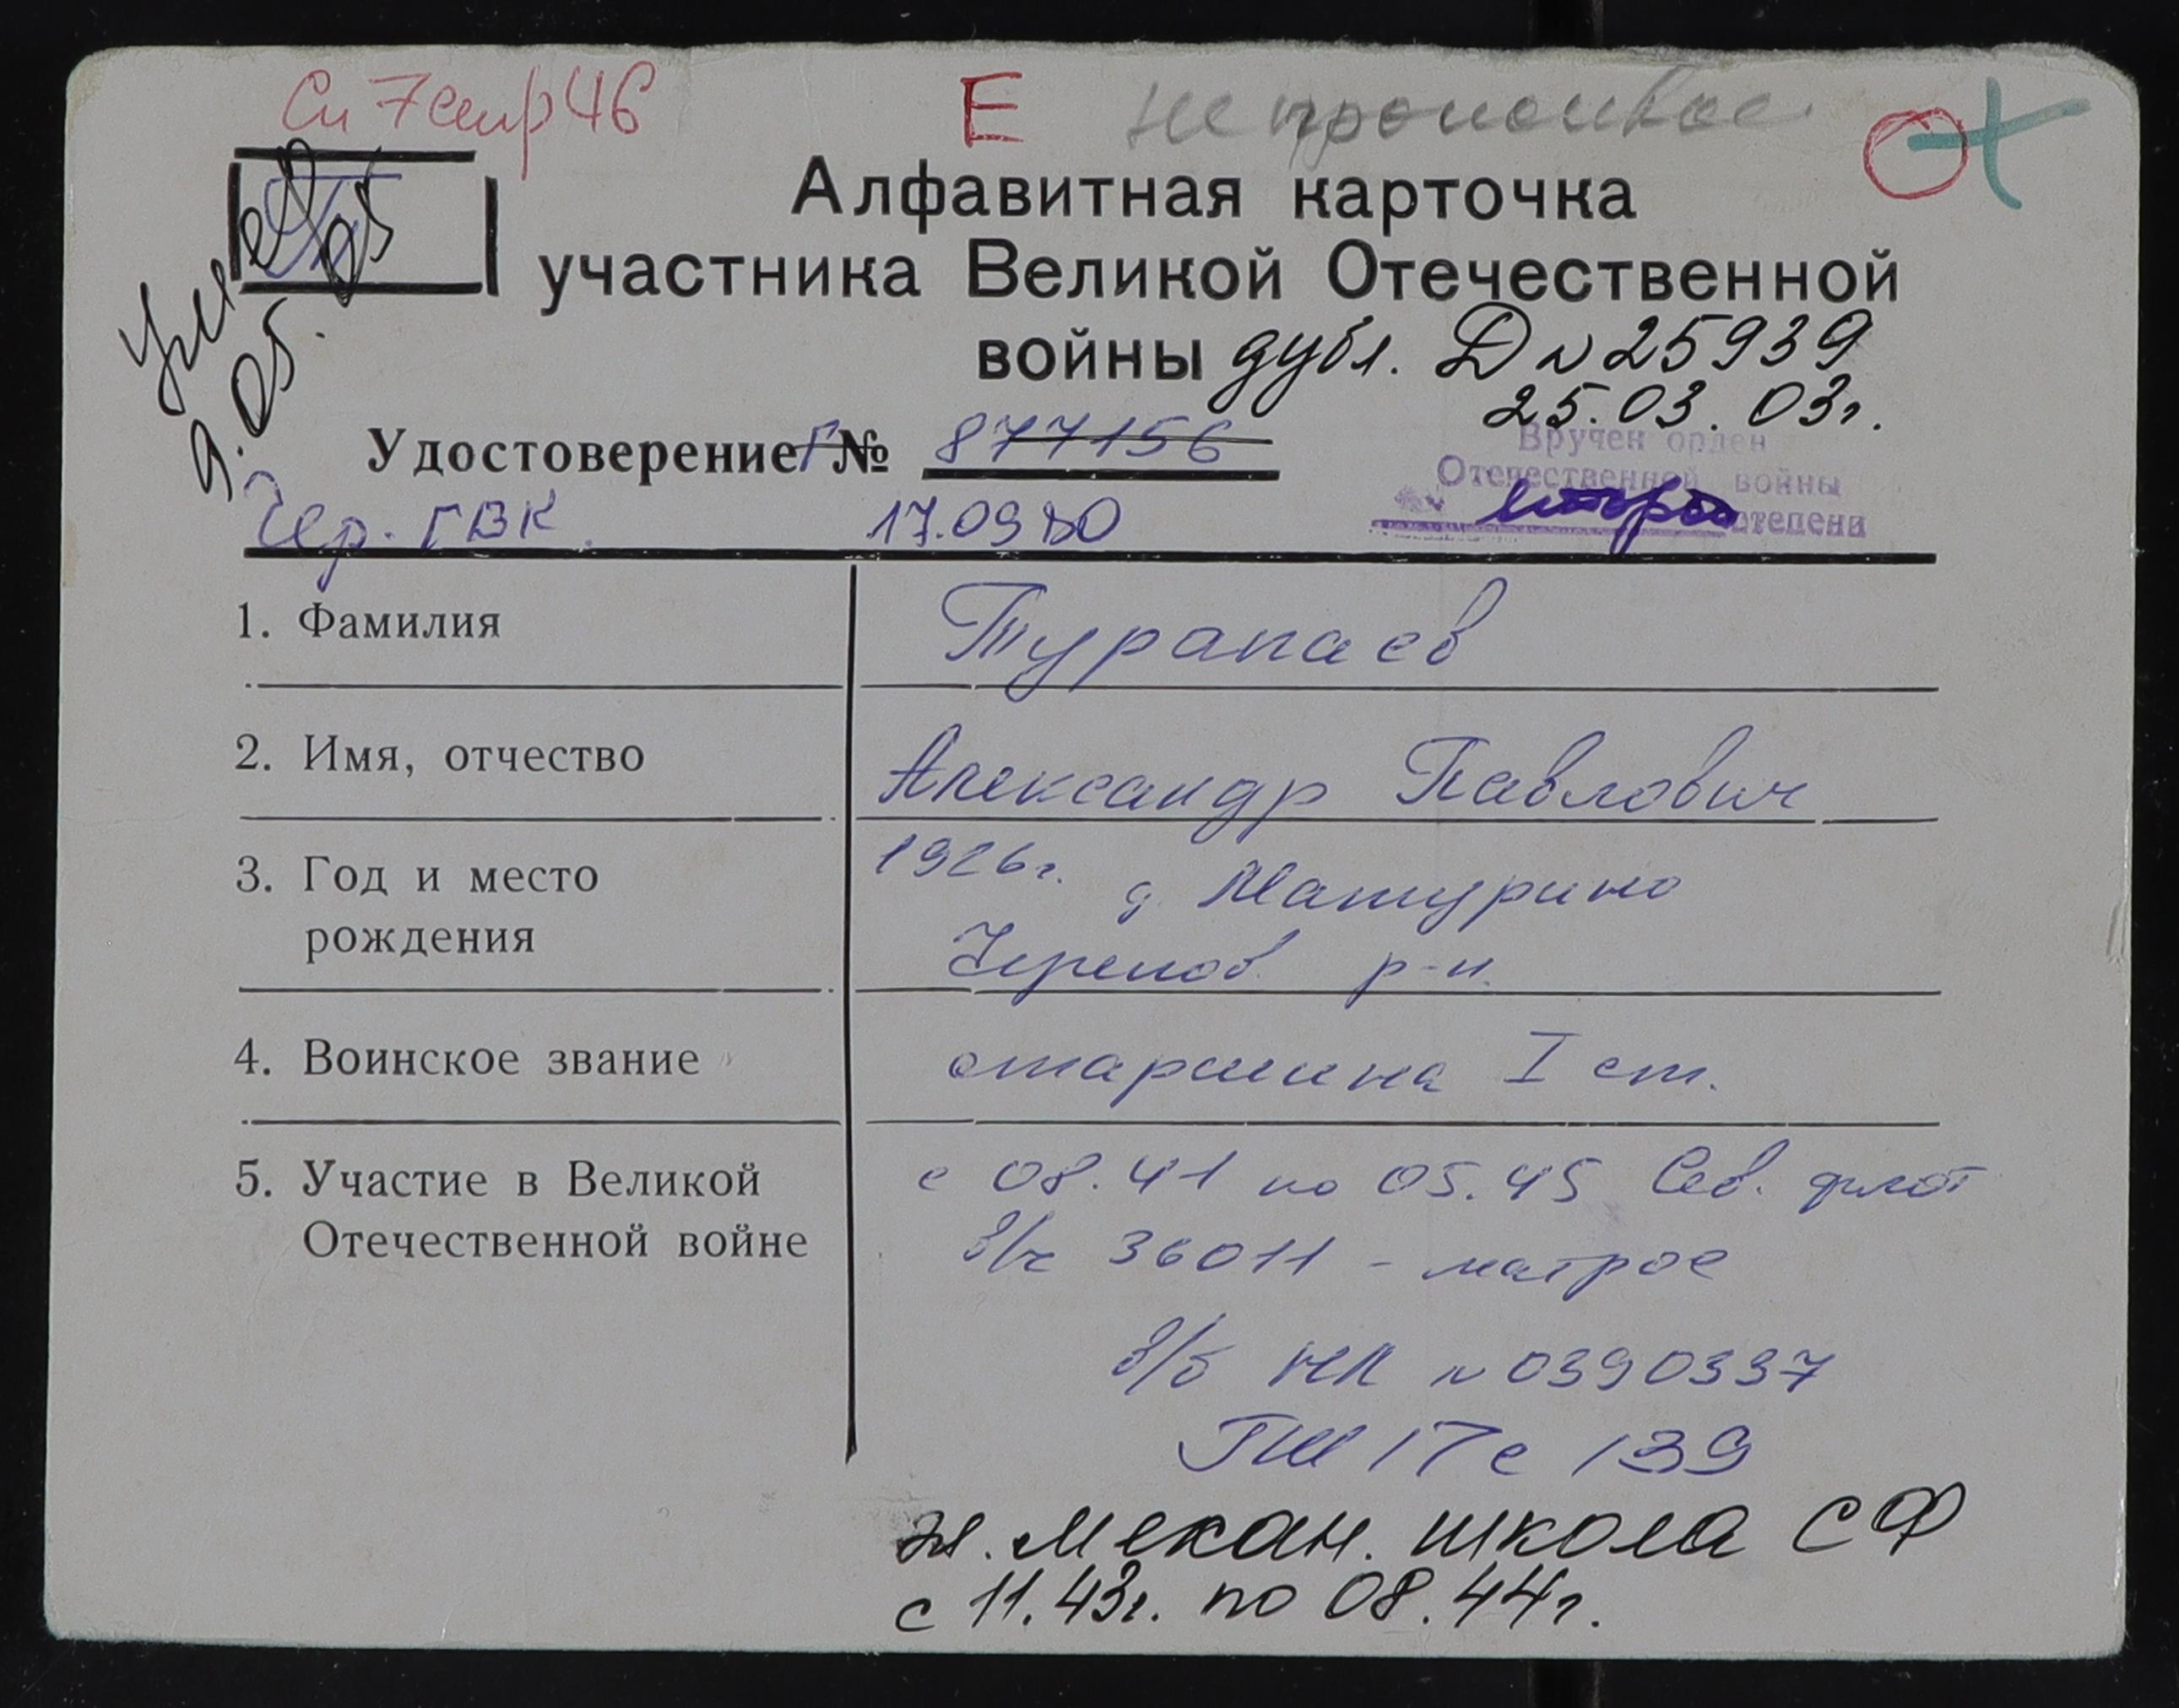 Сп 7 стр 46
Е
Алфавитная карточка
участника Великой Отечественной
войны дубл. Д № 25939
25.03.03г.
Умер
9.05.05
Удостоверение Г № 877156
Вручен орден
Отечественной войны
второй степени
Чер. ГВК. 17.09.80
1. Фамилия Турапаев
2. Имя, отчество Александр Павлович
3. Год и место 1926г. д. Матурино
рождения Черепов. р-н.
4. Воинское звание старшина I ст.
5. Участие в Великой с 08.41 по 05.45 Сев. флот
Отечественной войне в/ч 36011 - матрос
в/б НК № 0390337
ГШ 17 с 139
мехам. школа СФ
с 11.43г. по 08.44г.